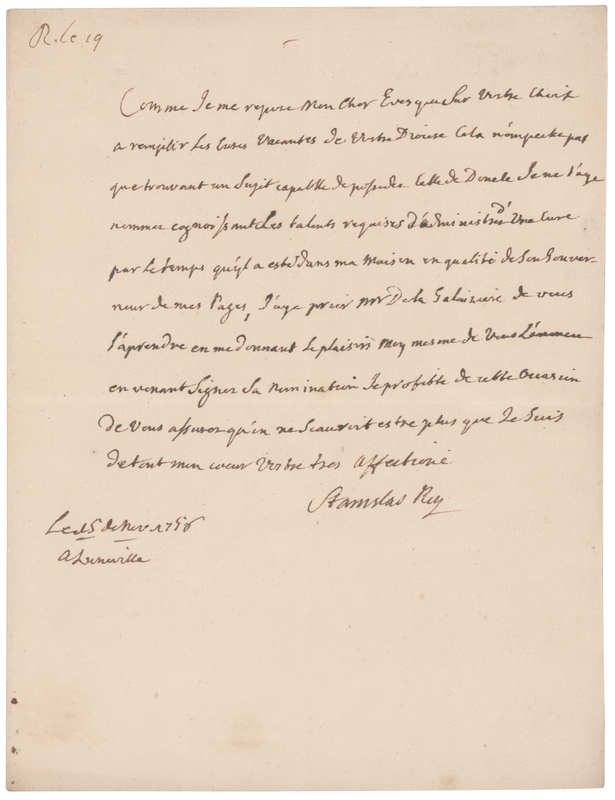 R. le 19
Comme Je me repose Mon Cher Evesque sur Vostre Choix
a remplir les Cures Vacantes de Vostre Diocese Cela n'empeche pas
que trouvant un Sujet capable de posseder celle de Je ne l'aye
nommer cognoissant les talents requises d'administrer Une Cure
par le temps qu'yl a esté dans ma Maison en qualité de Gouver-
neur de mes Pages, J'aye prier Mr De la Galaiziere de vous
l'aprendre en me donnant le plaisir Moy mesme de Vous
en venant Signer Sa Nomination Je profitte de cette Occasion
de Vous assurer qu'on ne Scauroit estre plus que Je Suis
de tout mon coeur Vostre tres Affectioné
Stanislas Roy
Le 15 de Nov. 1756
A Luneville